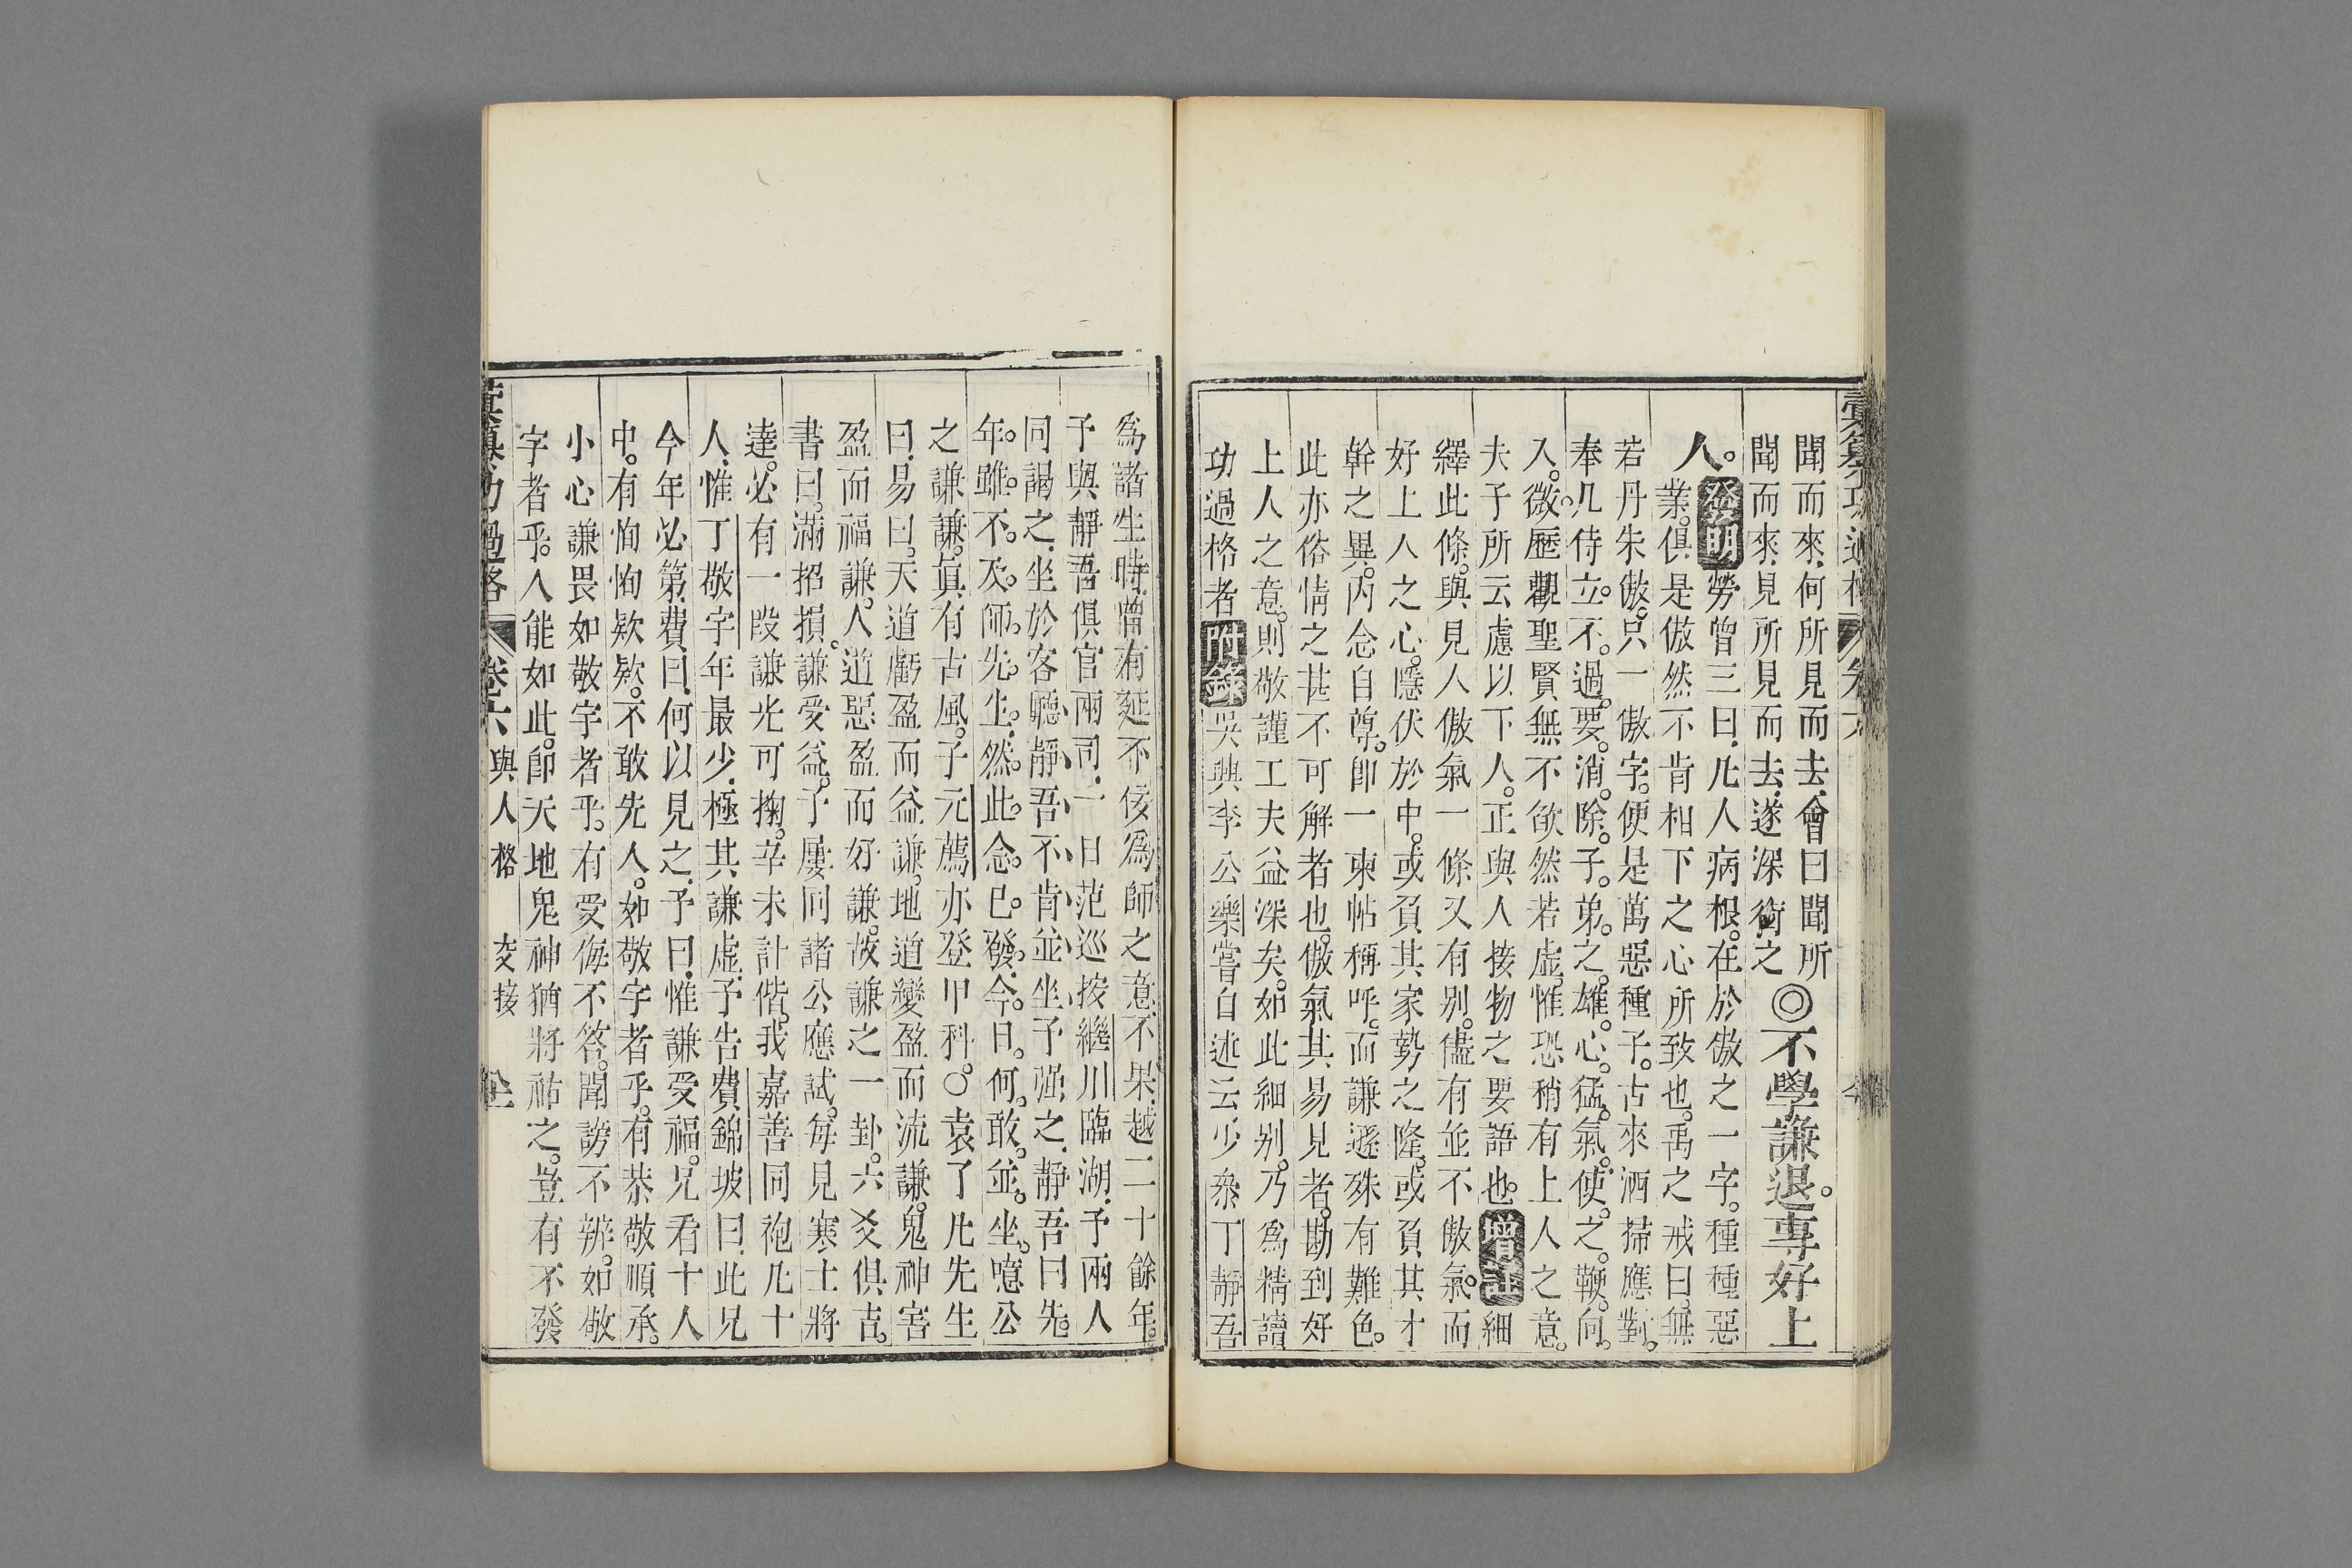 彙纂功過格 卷六
聞而來。何所見而去。會曰聞所
聞而來。見所見而去。遂深銜之◎不學謙退。專好上
人。發明勞曾三曰。凡人病根。在於傲之一字。種種惡
業。俱是傲然不肯相下之心所致也。禹之戒曰。無
若丹朱傲。只一傲字。便是萬惡種子。古來洒掃應對。
奉几侍立。不過要消除子弟之雄心猛氣。使之鞭向
入微。歷觀聖賢。無不欿然若虛。惟恐稍有上人之意。
夫子所云慮以下人。正與人接物之要語也。增註細
繹此條。與見人傲氣一條又有别。儘有並不傲氣。而
好上人之心。隱伏於中。或負其家勢之隆。或負其才
幹之異。內念自尊。卽一柬帖稱呼。而謙遜殊有難色。
此亦俗情之甚不可解者也。傲氣其易見者。勘到好
上人之意。則敬謹工夫益深矣。如此細别。乃爲精讀
功過格者。附錄吳興李公樂嘗自述云。少叅丁靜吾
爲諸生時。曾有延不佞爲師之意。不果。越二十餘年。
予與靜吾俱官兩司。一日范巡按繼川臨湖。予兩人
同謁之。坐於客廳。靜吾不肯並坐。予强之。靜吾曰。先
年雖不及師先生。然此念已發。今日何敢並坐。噫。公
之謙謙。眞有古風。子元薦。亦登甲科。○袁了凡先生
曰。易曰。天道虧盈而益謙。地道變盈而流謙。鬼神害
盈而福謙。人道惡盈而好謙。故謙之一卦。六爻俱吉。
書曰。滿招損。謙受益。予屢同諸公應試。每見寒士將
達。必有一段謙光可掬。辛未計偕。我嘉善同袍凡十
人。惟丁敬宇年最少。極其謙虛。予告費錦坡曰。此兄
今年必第。費曰。何以見之。予曰。惟謙受福。兄看十人
中。有恂恂欵欵。不敢先人。如敬宇者乎。有恭敬順承。
小心謙畏如敬宇者乎。有受侮不答。聞謗不辨。如敬
宇者乎。人能如此。卽天地鬼神猶將祐之。豈有不發
彙纂功過格 卷六 與人格 交接